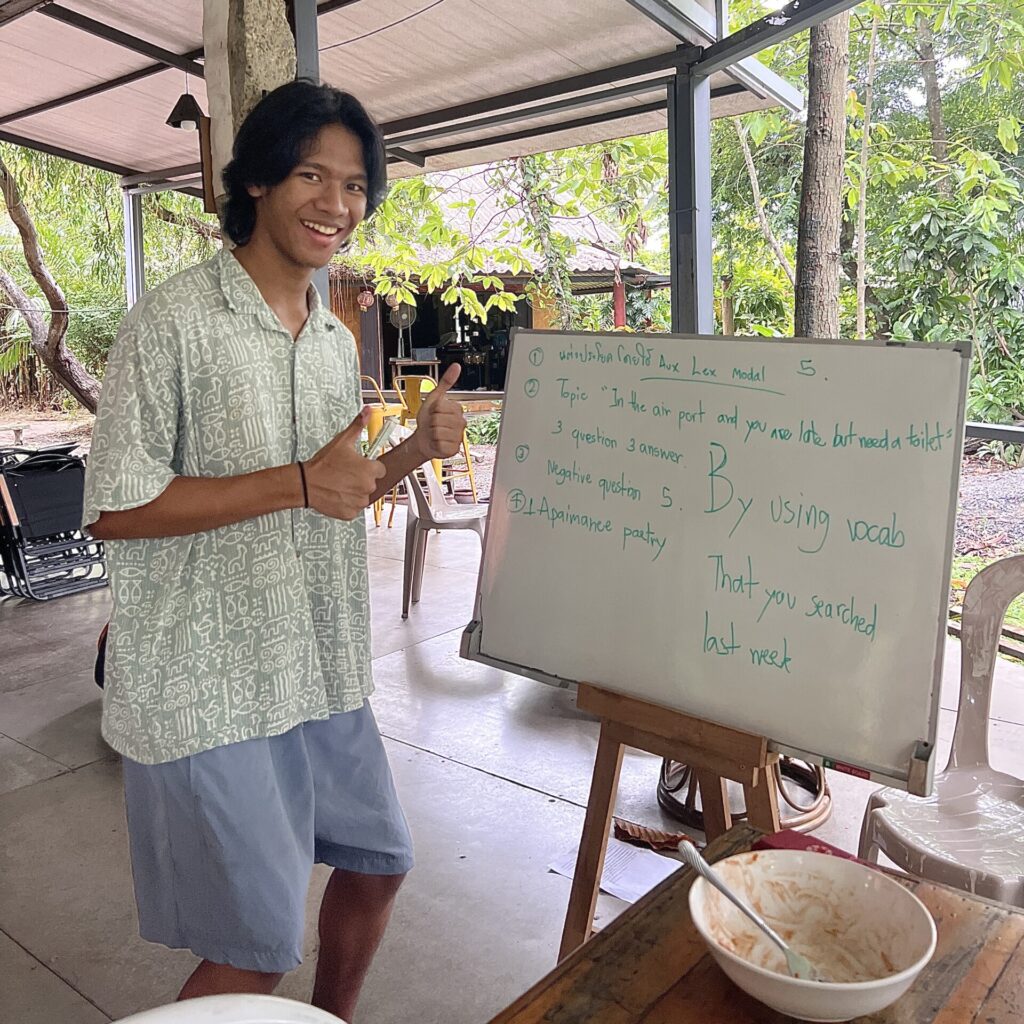 ① แต่งประโยคโดยใช้ Aux Lex Modal 5.
② Topic "In the air port and you are late but need a toilet"
3 question 3 answer.
③ Negative question 5.
④ 1 Apaimanee poetry
By using vocab
That you searched
last week
WHITE BOARD